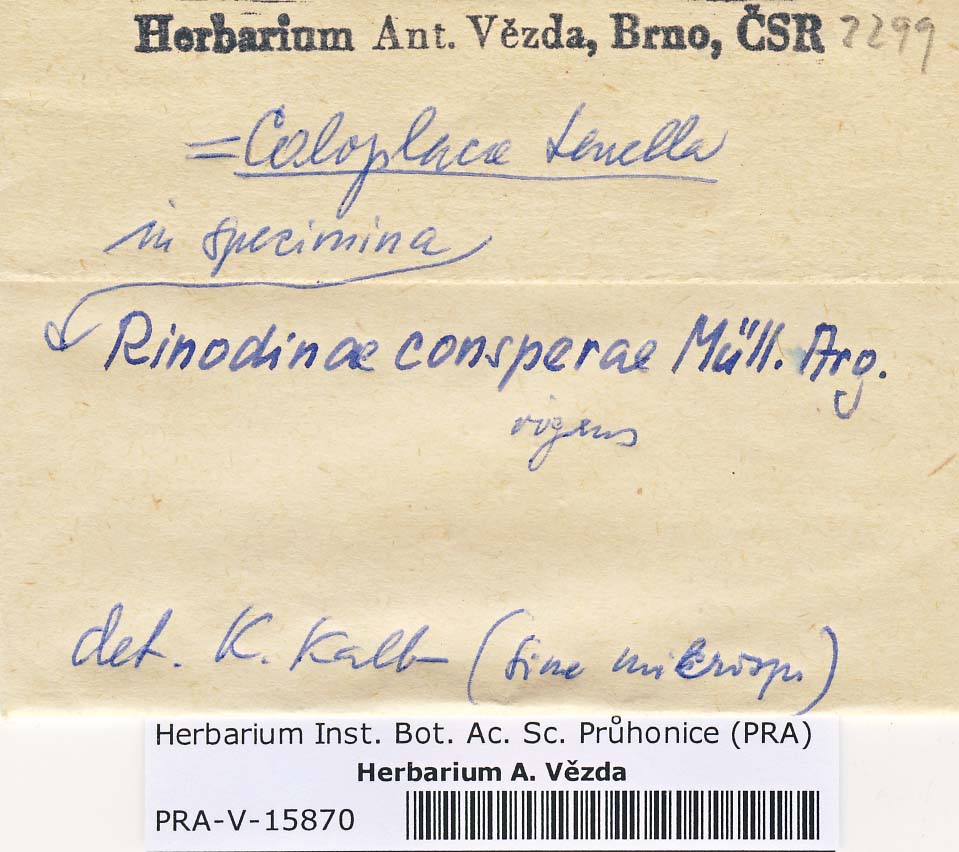 Herbarium Ant. Vězda, Brno, ČSR 2299
= Caloplaca tenella
in specimina
Rinodinae consperae Müll. Arg.
vigens
det. K. Kalb (sine mikrosp.)
Herbarium Inst. Bot. Ac. Sc. Průhonice (PRA)
Herbarium A. Vězda
PRA-V-15870